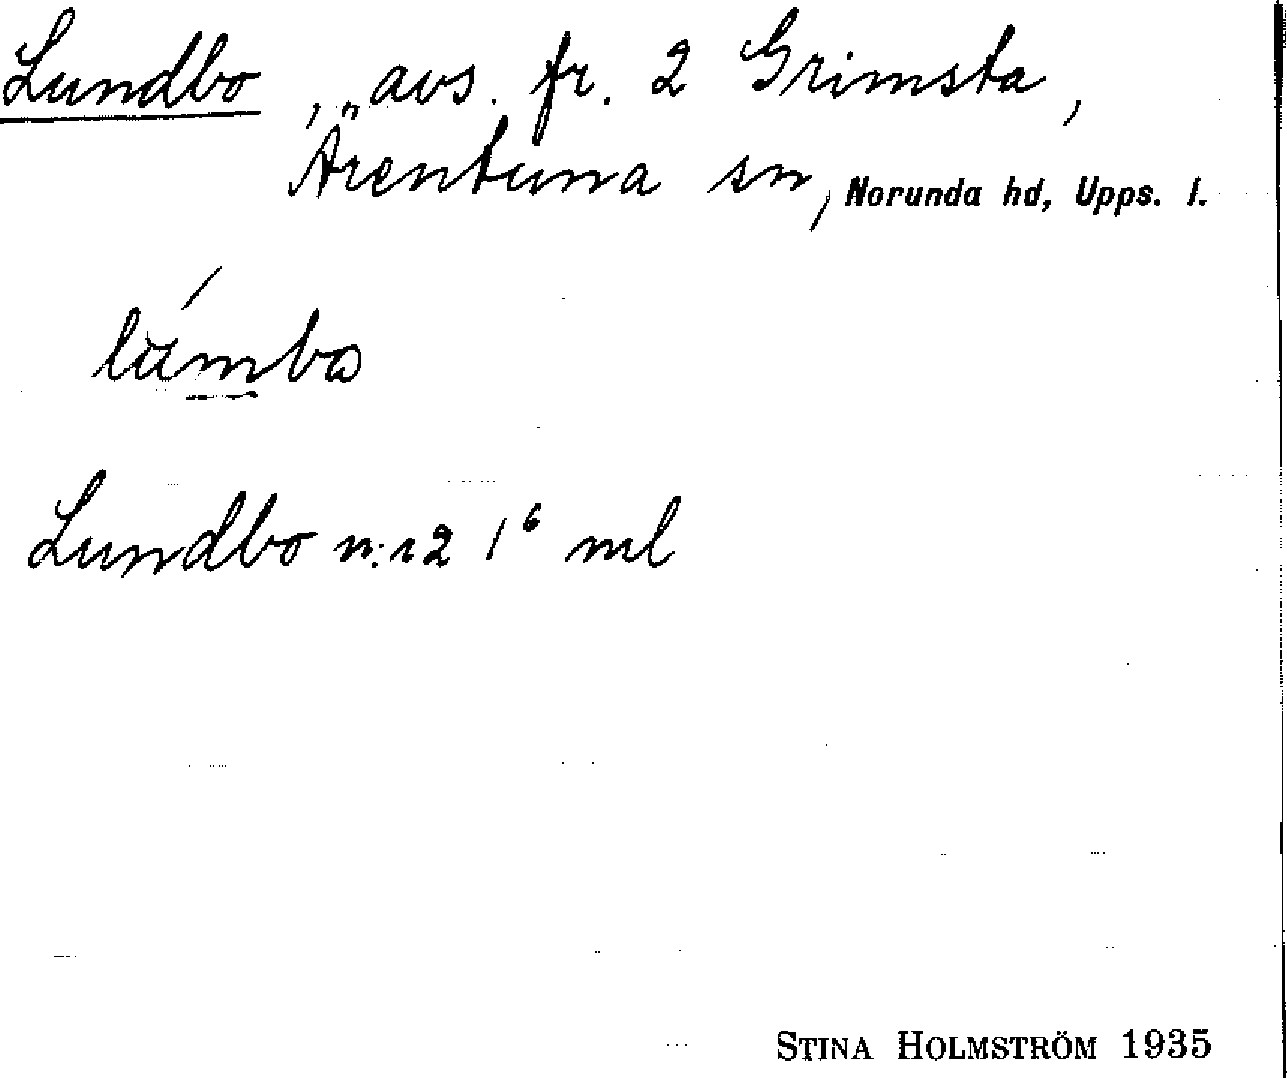 Lundbo, „avs. fr. 2 Grimsta,
Ärentuna sn, Norunda hd, Upps. l.
lúmbo
Lundbo n:r 2 1⁶ ml
STINA HOLMSTRÖM 1935